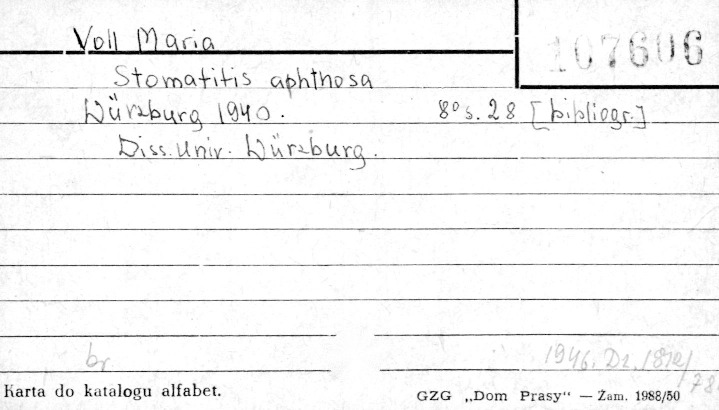 Voll Maria
107606
Stomatitis aphthosa
Würzburg 1940. 8° s. 28 [bibliogr.]
Diss. Univ. Würzburg.
br.
1946. Dz.
Karta do katalogu alfabet.
GZG „Dom Prasy“ — Zam. 1988/50